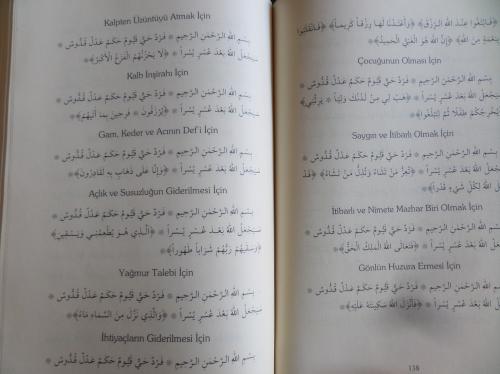 Kalpten Üzüntüyü Atmak İçin
بِسْمِ اللهِ الرَّحْمٰنِ الرَّحِيمِ * فَرْدٌ حَيٌّ قَيُّومٌ حَكَمٌ عَدْلٌ قُدُّوسٌ *
سَيَجْعَلُ اللهُ بَعْدَ عُسْرٍ يُسْراً * ﴿لَا يَحْزُنُهُمُ الْفَزَعُ الْأَكْبَرُ﴾ *
Kalb İnşirahı İçin
بِسْمِ اللهِ الرَّحْمٰنِ الرَّحِيمِ * فَرْدٌ حَيٌّ قَيُّومٌ حَكَمٌ عَدْلٌ قُدُّوسٌ *
سَيَجْعَلُ اللهُ بَعْدَ عُسْرٍ يُسْراً * ﴿يُرْزَقُونَ * فَرِحِينَ بِمَا آتَيهُمُ﴾ *
Gam, Keder ve Acının Def'i İçin
بِسْمِ اللهِ الرَّحْمٰنِ الرَّحِيمِ * فَرْدٌ حَيٌّ قَيُّومٌ حَكَمٌ عَدْلٌ قُدُّوسٌ *
سَيَجْعَلُ اللهُ بَعْدَ عُسْرٍ يُسْراً * ﴿وَإِنَّا عَلَى ذَهَابٍ بِهِ لَقَادِرُونَ﴾ *
Açlık ve Susuzluğun Giderilmesi İçin
بِسْمِ اللهِ الرَّحْمٰنِ الرَّحِيمِ * فَرْدٌ حَيٌّ قَيُّومٌ حَكَمٌ عَدْلٌ قُدُّوسٌ *
سَيَجْعَلُ اللهُ بَعْدَ عُسْرٍ يُسْراً * ﴿الَّذِي هُوَ يُطْعِمُنِي وَيَسْقِينِ﴾
﴿وَسَقَيهُمْ رَبُّهُمْ شَرَاباً طَهُوراً﴾ *
Yağmur Talebi İçin
بِسْمِ اللهِ الرَّحْمٰنِ الرَّحِيمِ * فَرْدٌ حَيٌّ قَيُّومٌ حَكَمٌ عَدْلٌ قُدُّوسٌ *
سَيَجْعَلُ اللهُ بَعْدَ عُسْرٍ يُسْراً * ﴿وَالَّذِي نَزَّلَ مِنَ السَّمَاءِ مَاءً﴾ *
İhtiyaçların Giderilmesi İçin
بِسْمِ اللهِ الرَّحْمٰنِ الرَّحِيمِ * فَرْدٌ حَيٌّ قَيُّومٌ حَكَمٌ عَدْلٌ قُدُّوسٌ
﴿فَابْتَغُوا عِنْدَ اللهِ الرِّزْقَ﴾ ﴿وَأَعْتَدْنَا لَهَا رِزْقاً كَرِيماً﴾ ﴿فَانْقَلَبُوا
بِنِعْمَةٍ مِنَ اللهِ﴾ ﴿إِنَّ اللهَ هُوَ الْغَنِيُّ الْحَمِيدُ﴾ *
Çocuğunun Olması İçin
بِسْمِ اللهِ الرَّحْمٰنِ الرَّحِيمِ * فَرْدٌ حَيٌّ قَيُّومٌ حَكَمٌ عَدْلٌ قُدُّوسٌ
سَيَجْعَلُ اللهُ بَعْدَ عُسْرٍ يُسْراً * ﴿هَبْ لِي مِنْ لَدُنْكَ وَلِيّاً * يَرِثُنِي﴾
يُخْرِجُكُمْ طِفْلًا ثُمَّ لِتَبْلُغُوا﴾ *
Saygın ve İtibarlı Olmak İçin
بِسْمِ اللهِ الرَّحْمٰنِ الرَّحِيمِ * فَرْدٌ حَيٌّ قَيُّومٌ حَكَمٌ عَدْلٌ قُدُّوسٌ
سَيَجْعَلُ اللهُ بَعْدَ عُسْرٍ يُسْراً * ﴿تُعِزُّ مَنْ تَشَاءُ وَتُذِلُّ مَنْ تَشَاءُ﴾ ﴿قَدْ
اللهُ لِكُلِّ شَيْءٍ قَدْراً﴾ *
İtibarlı ve Nimete Mazhar Biri Olmak İçin
بِسْمِ اللهِ الرَّحْمٰنِ الرَّحِيمِ * فَرْدٌ حَيٌّ قَيُّومٌ حَكَمٌ عَدْلٌ قُدُّوسٌ *
سَيَجْعَلُ اللهُ بَعْدَ عُسْرٍ يُسْراً * ﴿فَتَعَالَى اللهُ الْمَلِكُ الْحَقُّ﴾ *
Gönlün Huzura Ermesi İçin
بِسْمِ اللهِ الرَّحْمٰنِ الرَّحِيمِ * فَرْدٌ حَيٌّ قَيُّومٌ حَكَمٌ عَدْلٌ قُدُّوسٌ *
سَيَجْعَلُ اللهُ بَعْدَ عُسْرٍ يُسْراً * ﴿فَأَنْزَلَ اللهُ سَكِينَتَهُ عَلَيْهِ﴾ *
138